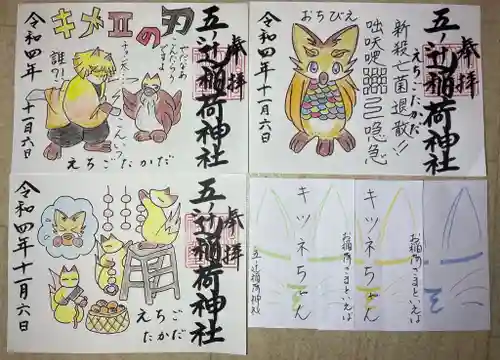 キメⅡの刃
五ノ辻稲荷神社
奉拝
誰?!
えちごたかだ
令和四年
十一月六日
おちびえ
五ノ辻稲荷神社
奉拝
えちごたかだ
新殺亡菌退散!!
咄吠吧
喼急
令和四年
十一月六日
五ノ辻稲荷神社
奉拝
えちご
たかだ
令和四年
十一月六日
お稲荷さまといえば
キツネちゃん
お稲荷さまといえば
キツネちゃん
五ノ辻稲荷神社